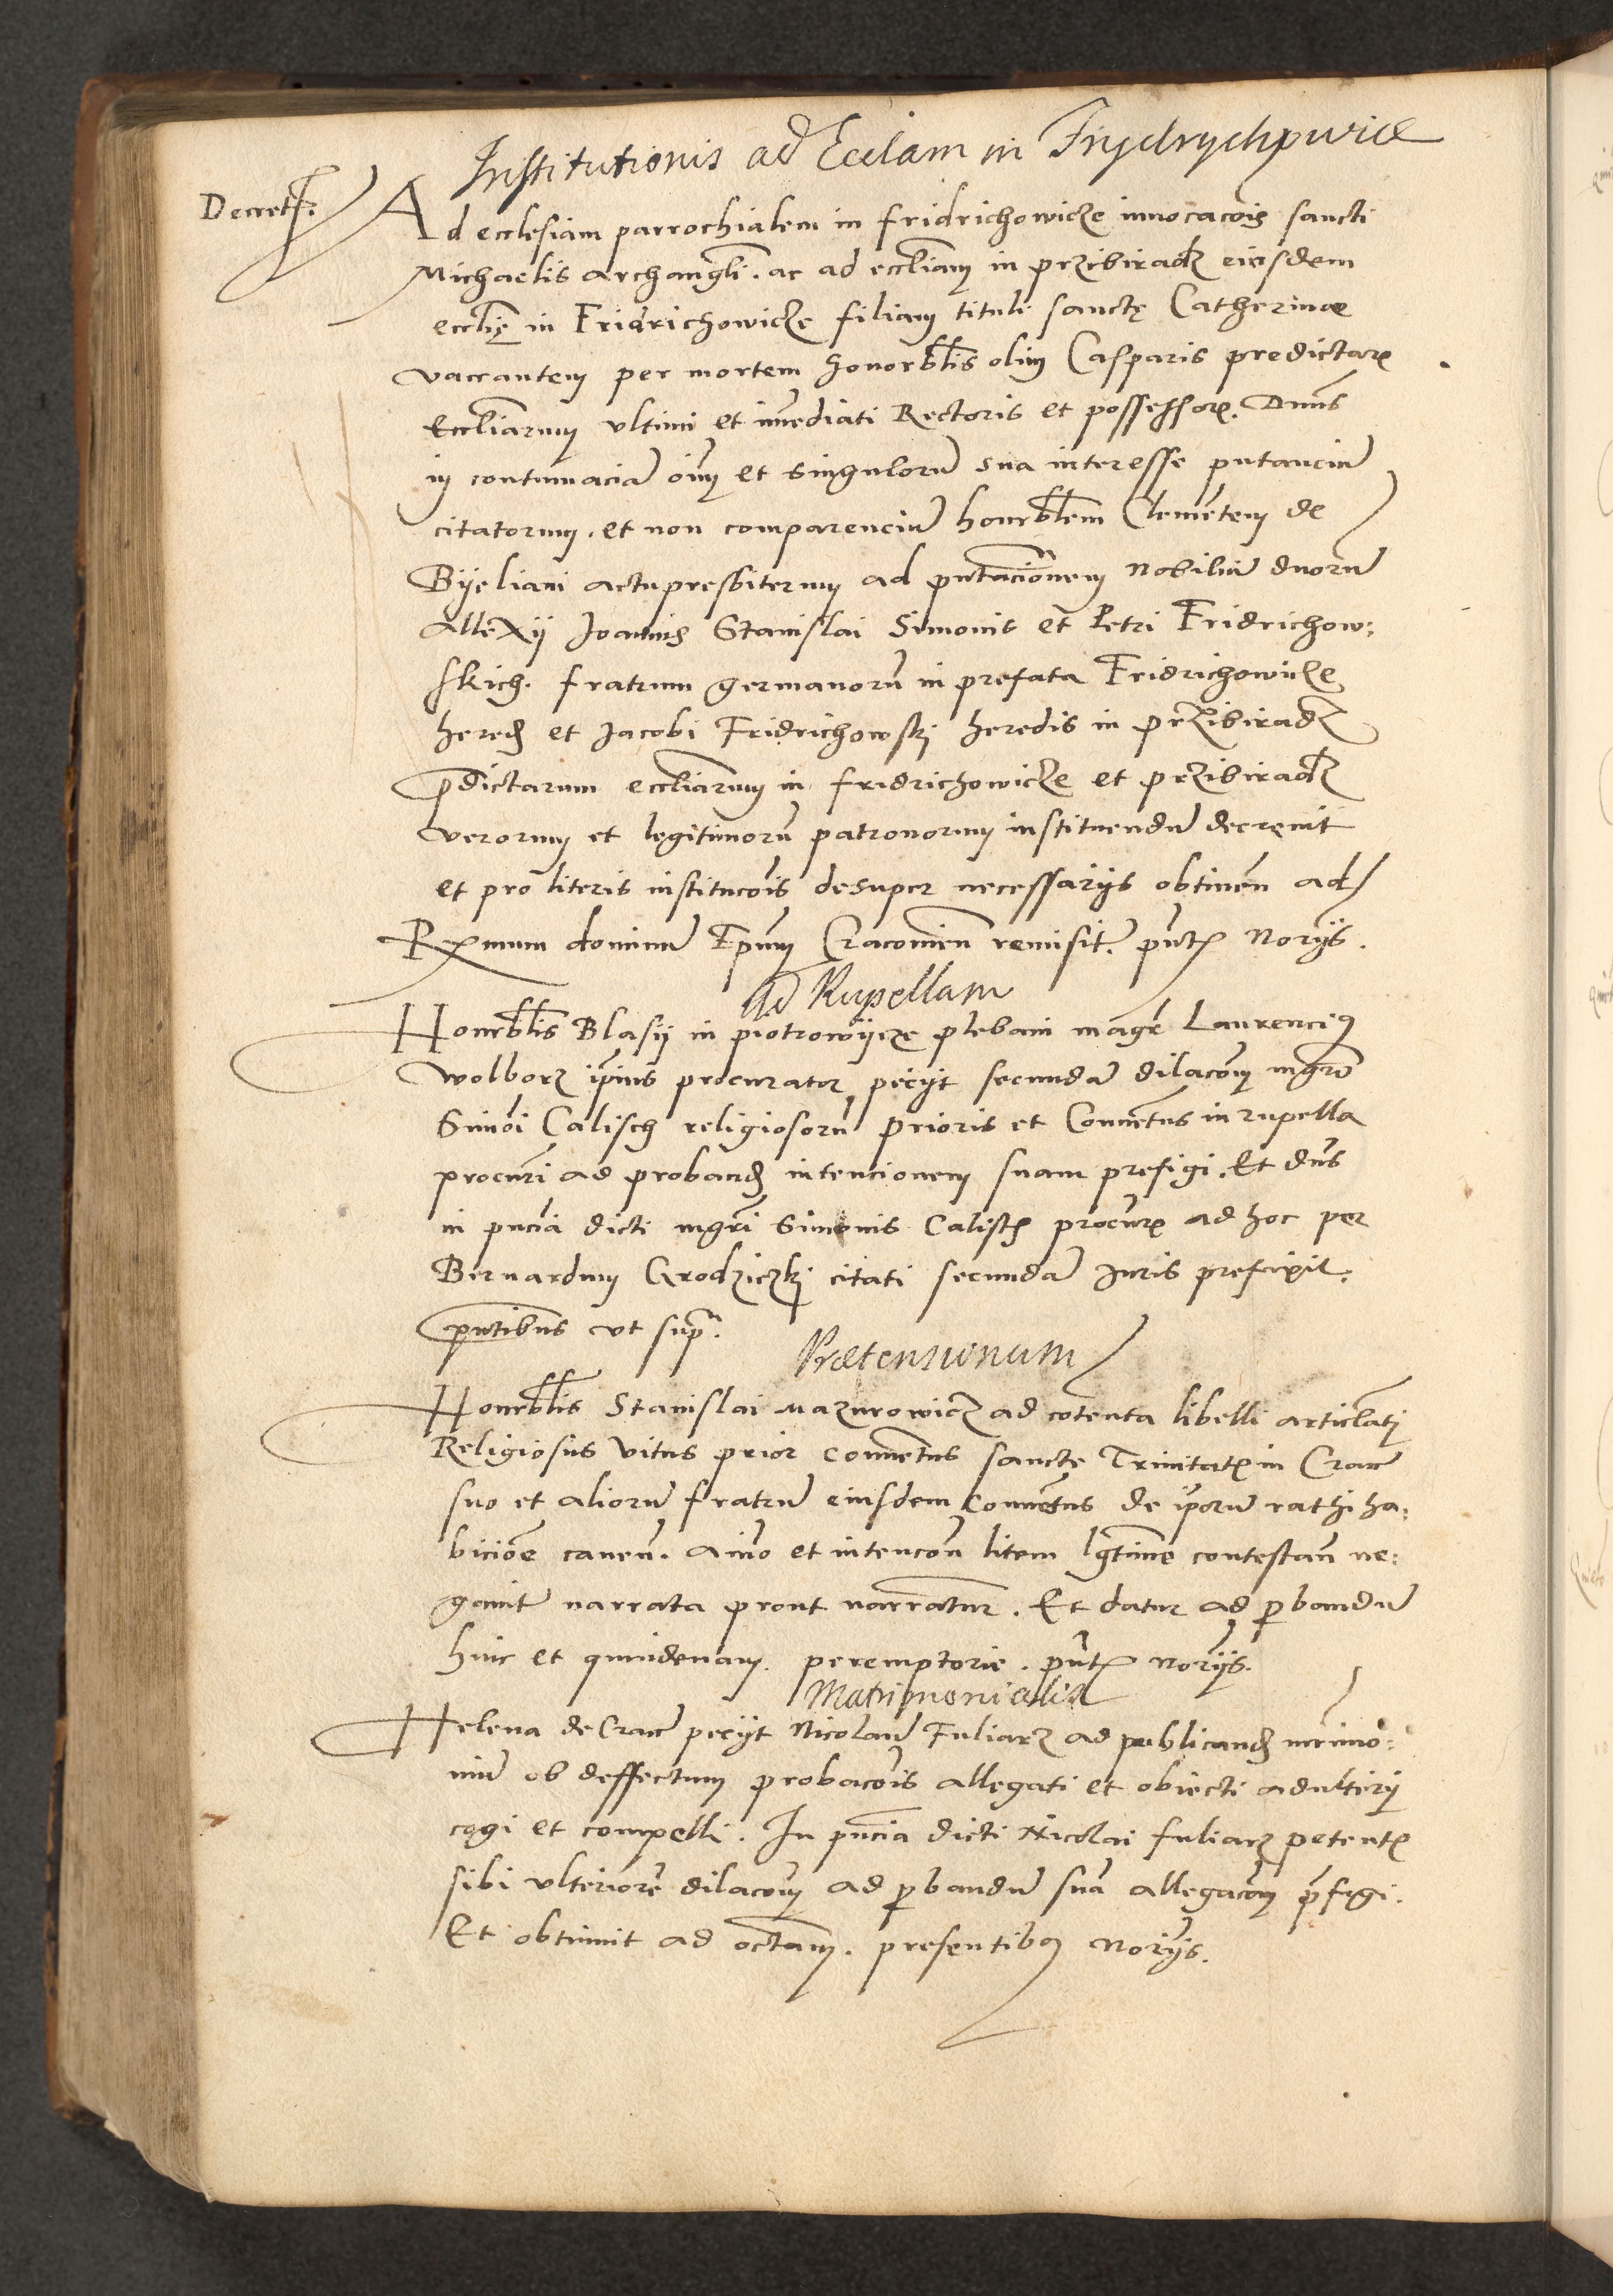 Institutionis ad Ecclam in Frydrychowice
Decret.
Ad ecclesiam parrochialem in fridrichowicze invocacois sancti
Michaelis archangli. ac ad eccliam in przibiradz eiusdem
ecclię in Fridrichowicze filiam tituli sanctę Catherinae
vaccantem per mortem honorbilis olim Casparis predictar
Eccliarum ultimi et imediati Rectoris et possessor. Dnus
in contumaciã oim et singulorũ sua interesse putanciũ
citatorum. et non comparenciũ honrblem Clemẽtem de
Byeliani actu presbiterum ad pntacionem Nobiliũ dnorũ
Allexij Joannis Stanislai Simonis et Petri Fridrichow:
skich. fratrum germanorũ in prefata Fridrichowicze
hered et Jacobi Fridrichowskj heredis in Przibiradz
p̄dictarum eccliarum in fridrichowicze et przibiradz
verorum et legitimorũ patronorum instituendũ decrevit
et pro literis institucois desuper necessarijs obtinen ad
Rxmum dominũ Epum Cracovien remisit. pnt Norijs.
Ad Rupellam
Honrblis Blasij in piotrowijcze plebani magr Laurencius
wolborz ipius procurator pecijt secundã dilacom mgro
Simoi Calisch religiosorũ prioris et Conventus in rupella
procuri ad proband intencionem suam prefigi. Et dns
in pncia dicti mgri Simonis Calisch procur ad hoc per
Bernardum Grodziczkj citati secundã Juris prefixit.
pntibus ut supra.
Prætensionum
Honrblis Stanislai mazurowicz ad cotenta libelli articlati
Religiosus Vitus prior convẽtus sancte Trinitat in Crac
suo et aliorũ fratrũ eiusdem Convẽtus de iporũ rathi ha:
bicioe caven. aio et intencon litem lgtime contestan ne:
gavit narrata prout narrantur. Et datur ad pbandũ
hinc et quindenam. peremptorie. pnt norijs.
Matrimonialis
Helena de Crac pecijt Nicolaũ Fuliarz ad publicand mrimo:
niũ ob deffectum probacois allegati et obiecti adulterij
cogi et compelli. In pncia dicti Nicolai fuliarz petent
sibi ulteriorẽ dilacom ad pbandũ suã allegacom pfigi.
Et obtinuit ad octam. presentibus Norijs.